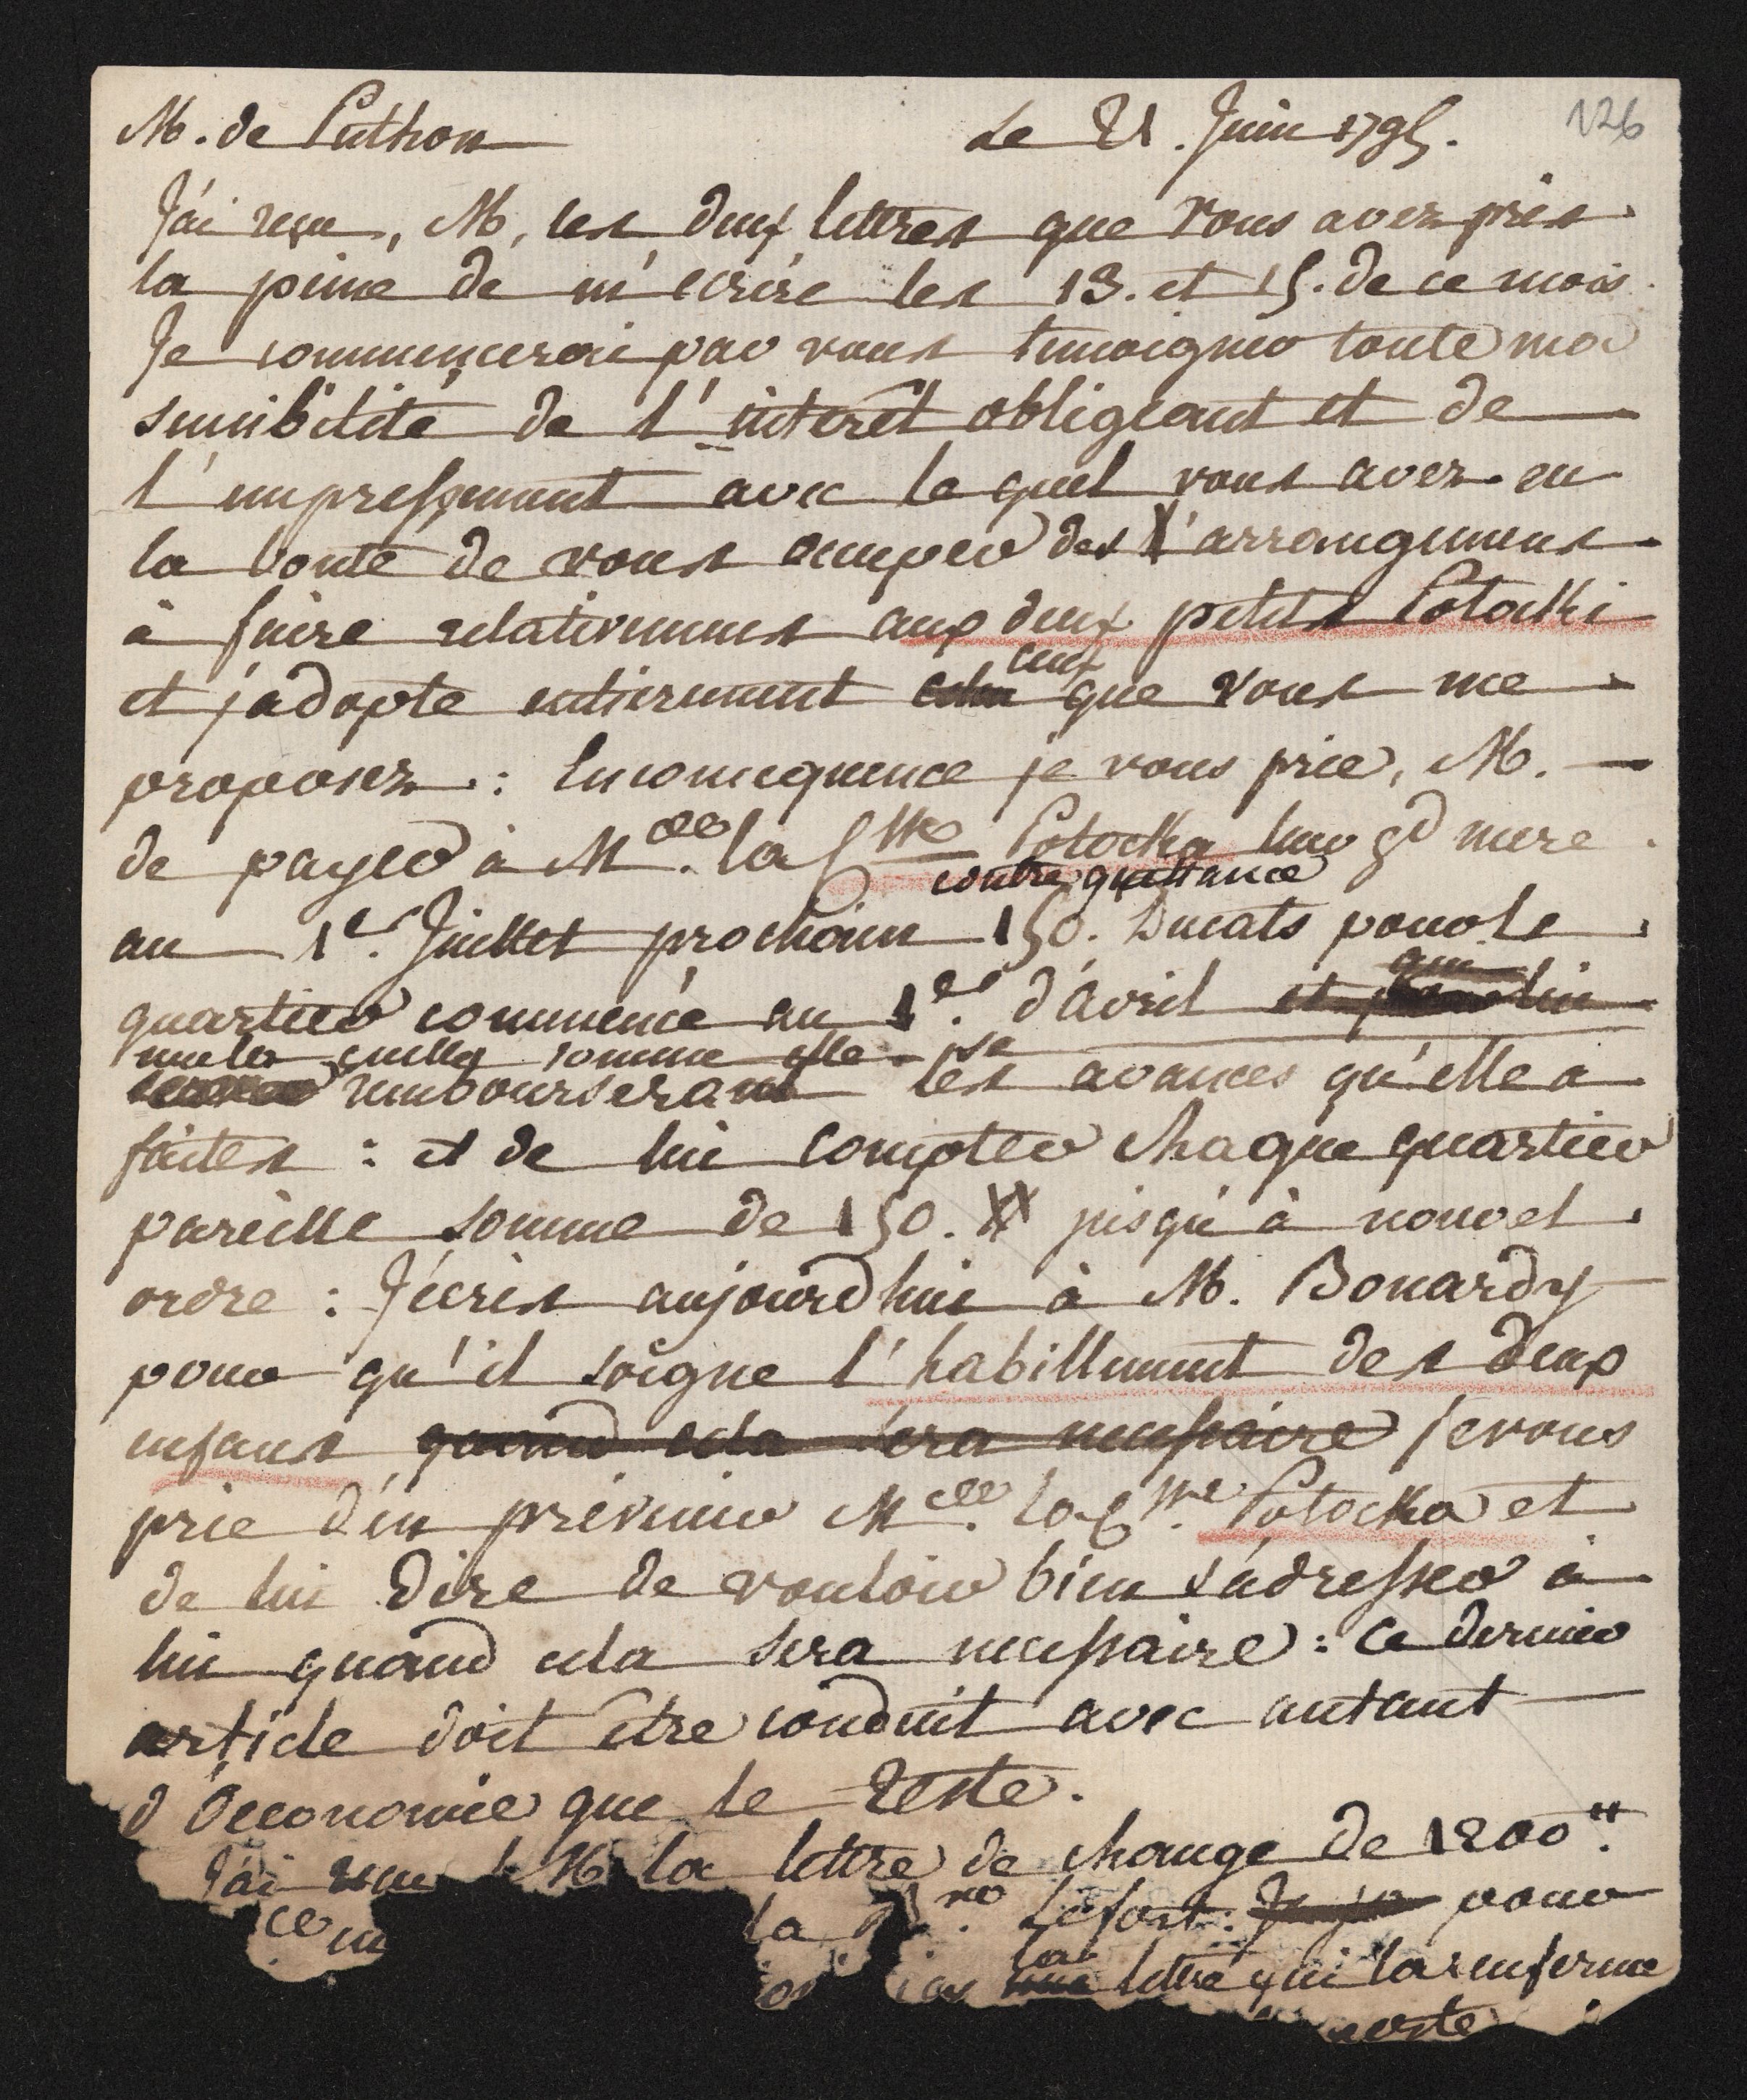 M. de Puthon Le 21. Juin 1795. 126
J'ai reçu, M, les deux lettres que vous avez pris
la peine de m'écrire les 13. et 15. de ce mois.
Je commencerai par vous temoigner toute ma
sensibilité de l'intérêt obligeant et de
l'empressement avec lequel vous avez eu
la bonté de vous occuper des l'arrangemens
à faire relativemens aux deux petits Potocki
ceux
et j'adopte entierement celui que vous me
proposez : Enconsequence je vous prie, M.
de payer à Mde. la Csse Potocka leur gd mere
contre quittance
au 1er. Juillet prochain 150. Ducats pour le
qui
quartier commencé au 1er. d'avril et pour lui
la quelle somme elle se
remboursera les avances qu'elle a
faites : et de lui compter chaque quartier
pareille somme de 150. ## jusqu'à nouvel
ordre : J'écris aujourd'hui à M. Bonardy
pour qu'il soigne l'habillement des deux
enfans quand cela sera necessaire je vous
prie d'en prévenir Mde. la Csse. Potocka et
de lui dire de vouloir bien s'adresser à
lui quand cela sera necessaire : ce dernier
article doit être conduit avec autant
d'Oeconomie que le reste.
J'ai reçu M la lettre de change de 1200 ##.
ce la Lefort. pour
la
une lettre qui la renferme
poste